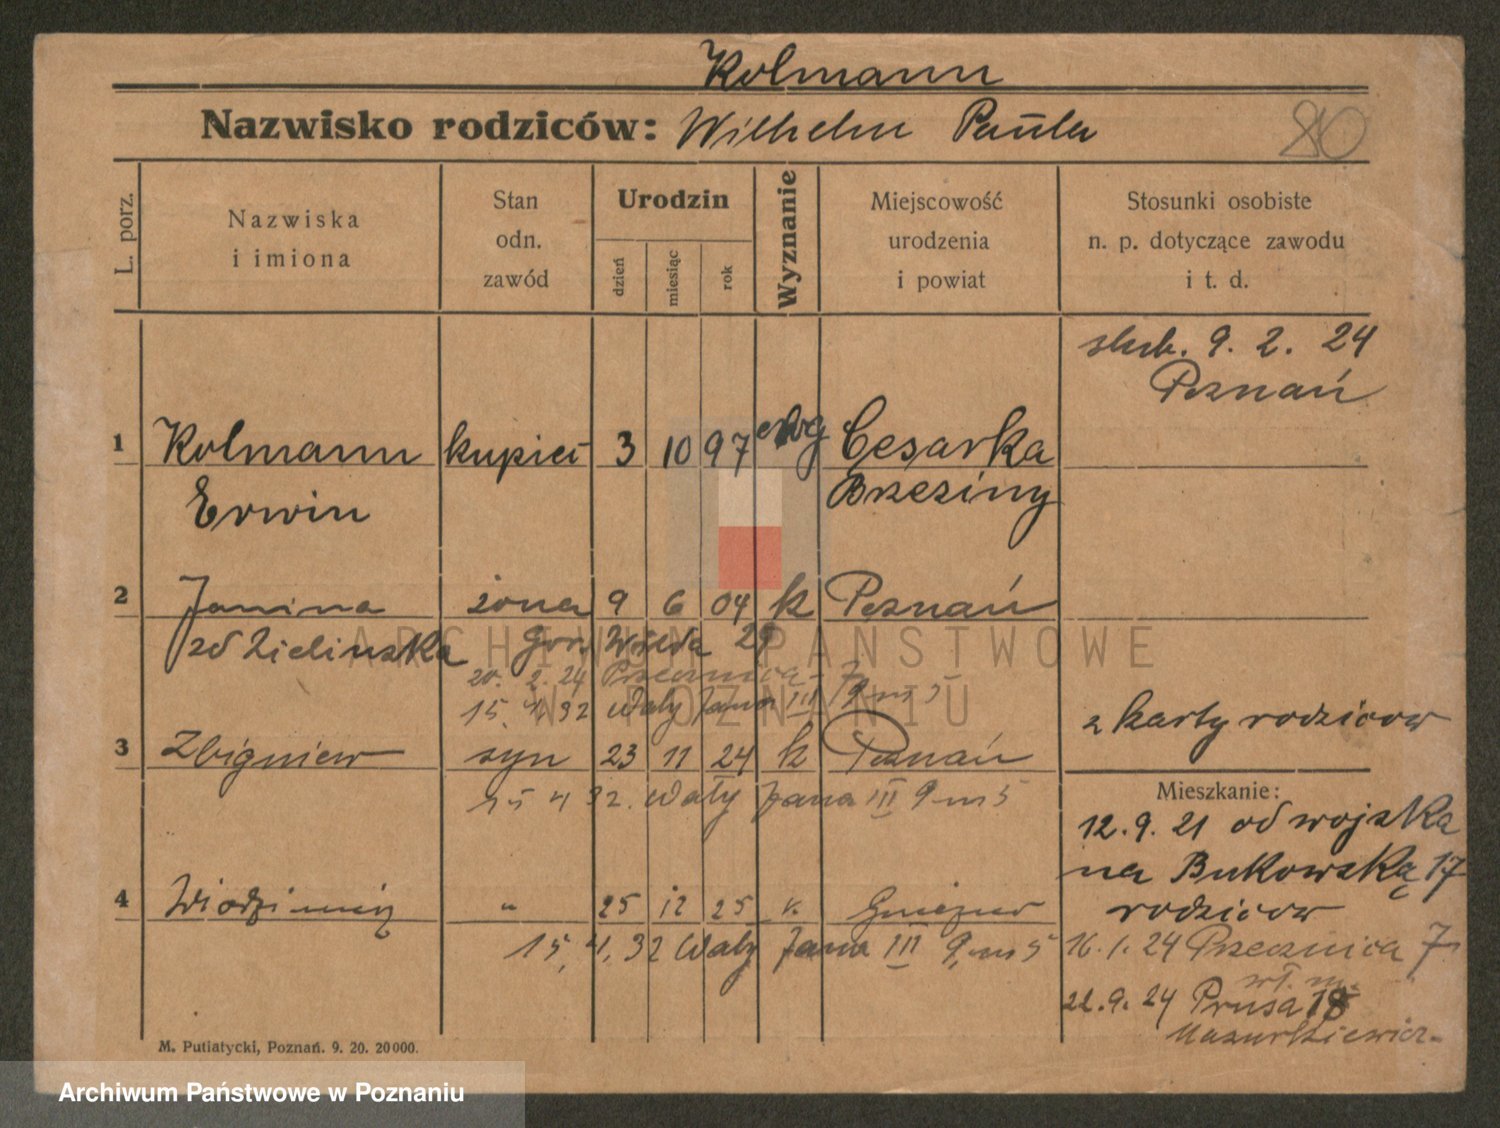 Kolmann
Nazwisko rodziców: Wilhelm Paula
80
L. porz.
Nazwiska
i imiona
Stan
odn.
zawód
Urodzin
dzień
miesiąc
rok
Wyznanie
Miejscowość
urodzenia
i powiat
Stosunki osobiste
n. p. dotyczące zawodu
i t. d.
ślub. 9. 2. 24
Poznań
1 Kolmann kupiec 3 10 97 ewg Cesarka
Erwin Brzeziny
2 Janina żona 9 6 04 k Poznań
zd Zielinska Gór Wilda 29
20. 2. 24 Przecznica 7
15. 4. 32 Wały Jana III 9 m 5
2 karty rodziców
3 Zbigniew syn 23 11 24 k Poznań
15 4 32. Wały Jana III 9 m 5
Mieszkanie:
12. 9. 21 od wojska
na Bukowską 17
rodziców
4 Włodzimierz " 25 12 25 k.
15. 4. 32 Wały Jana III 9 m 5
16. 1. 24 Przecznica 7
wł. m.
22. 9. 24 Prusa 18
Mazurkiewicz
M. Putiatycki, Poznań. 9. 20. 20000.
ARCHIWUM PAŃSTWOWE
W POZNANIU
Archiwum Państwowe w Poznaniu